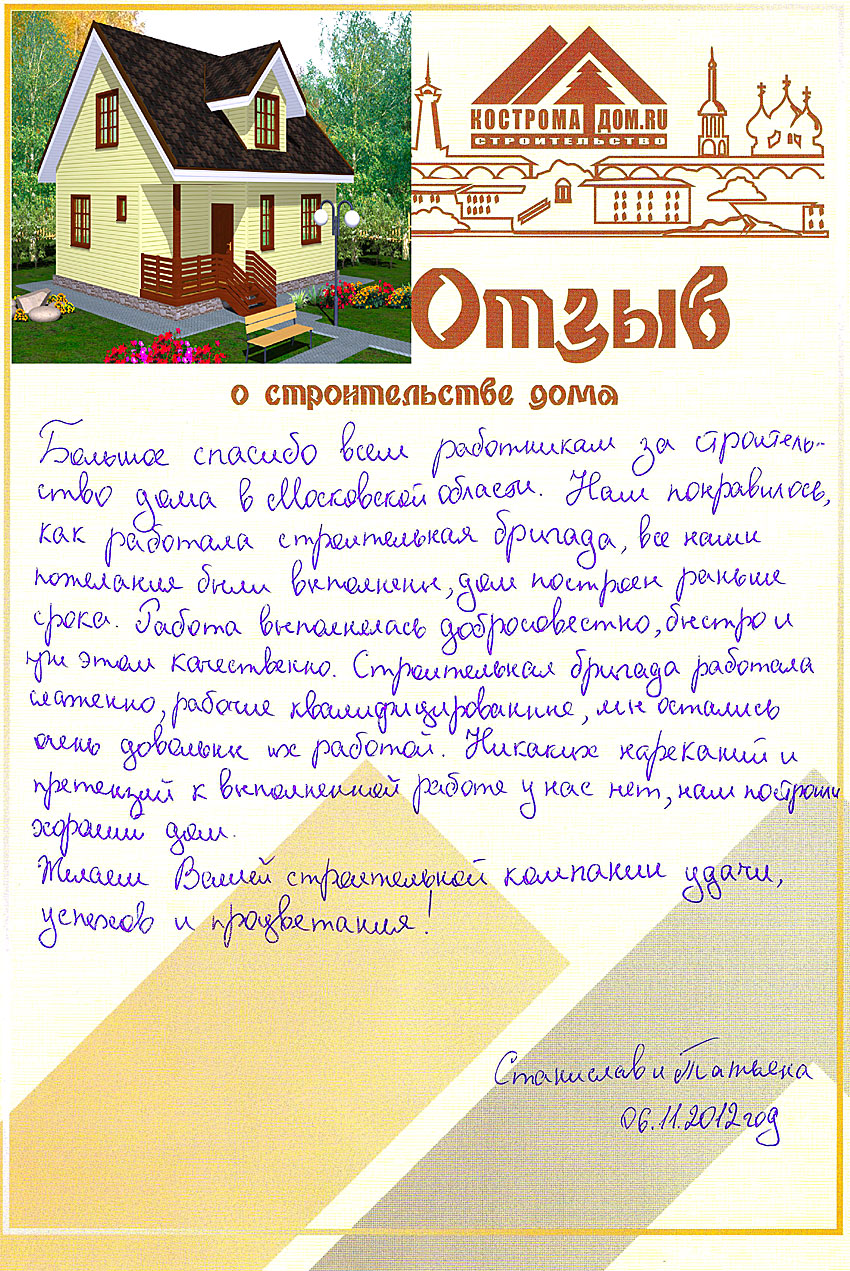 КОСТРОМА ДОМ.RU
СТРОИТЕЛЬСТВО
Отзыв
о строительстве дома
Большое спасибо всем работникам за строитель-
ство дома в Московской области. Нам понравилось,
как работала строительная бригада, все наши
пожелания были выполнены, дом построен раньше
срока. Работа выполнялась добросовестно, быстро и
при этом качественно. Строительная бригада работала
слаженно, рабочие квалифицированные, мы остались
очень довольны их работой. Никаких нареканий и
претензий к выполненной работе у нас нет, нам построили
хороший дом.
Желаем Вашей строительной компании удачи,
успехов и процветания!
Станислав и Татьяна
06.11.2012 год